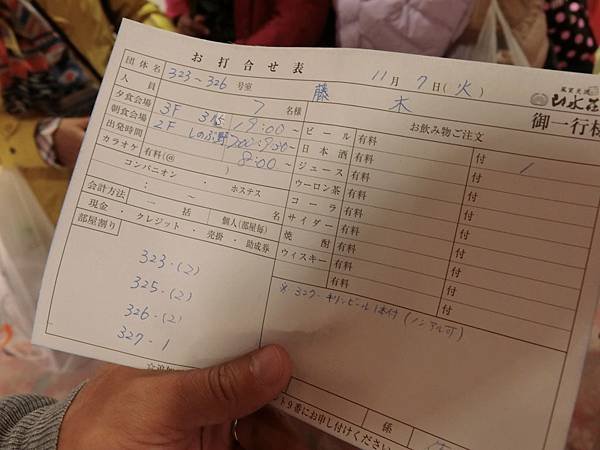 お打合せ表 11月7日(火)
山水荘
団体名 323~326号室 藤木 御一行様
人員 7名様 お飲み物ご注文
夕食会場 3F 19:00~ ビール 有料 付 1
朝食会場 2F しのぶ野 7:00~9:30 日本酒 有料 付
出発時間 8:00~ ジュース 有料 付
カラオケ 有料(@ ) ウーロン茶 有料 付
コンパニオン・ホステス コーラ 有料 付
: ~ : 名 サイダー 有料 付
会計方法 一括 個人(部屋毎) 焼酎 有料 付
現金・クレジット・売掛・助成券 ウィスキー 有料 付
部屋割り 有料 付
323・(2)
325・(2)
326・(2)
327・1
※327・キリンビール1本付(ノンアル可)
☆追加
9番にお申し付けください 係